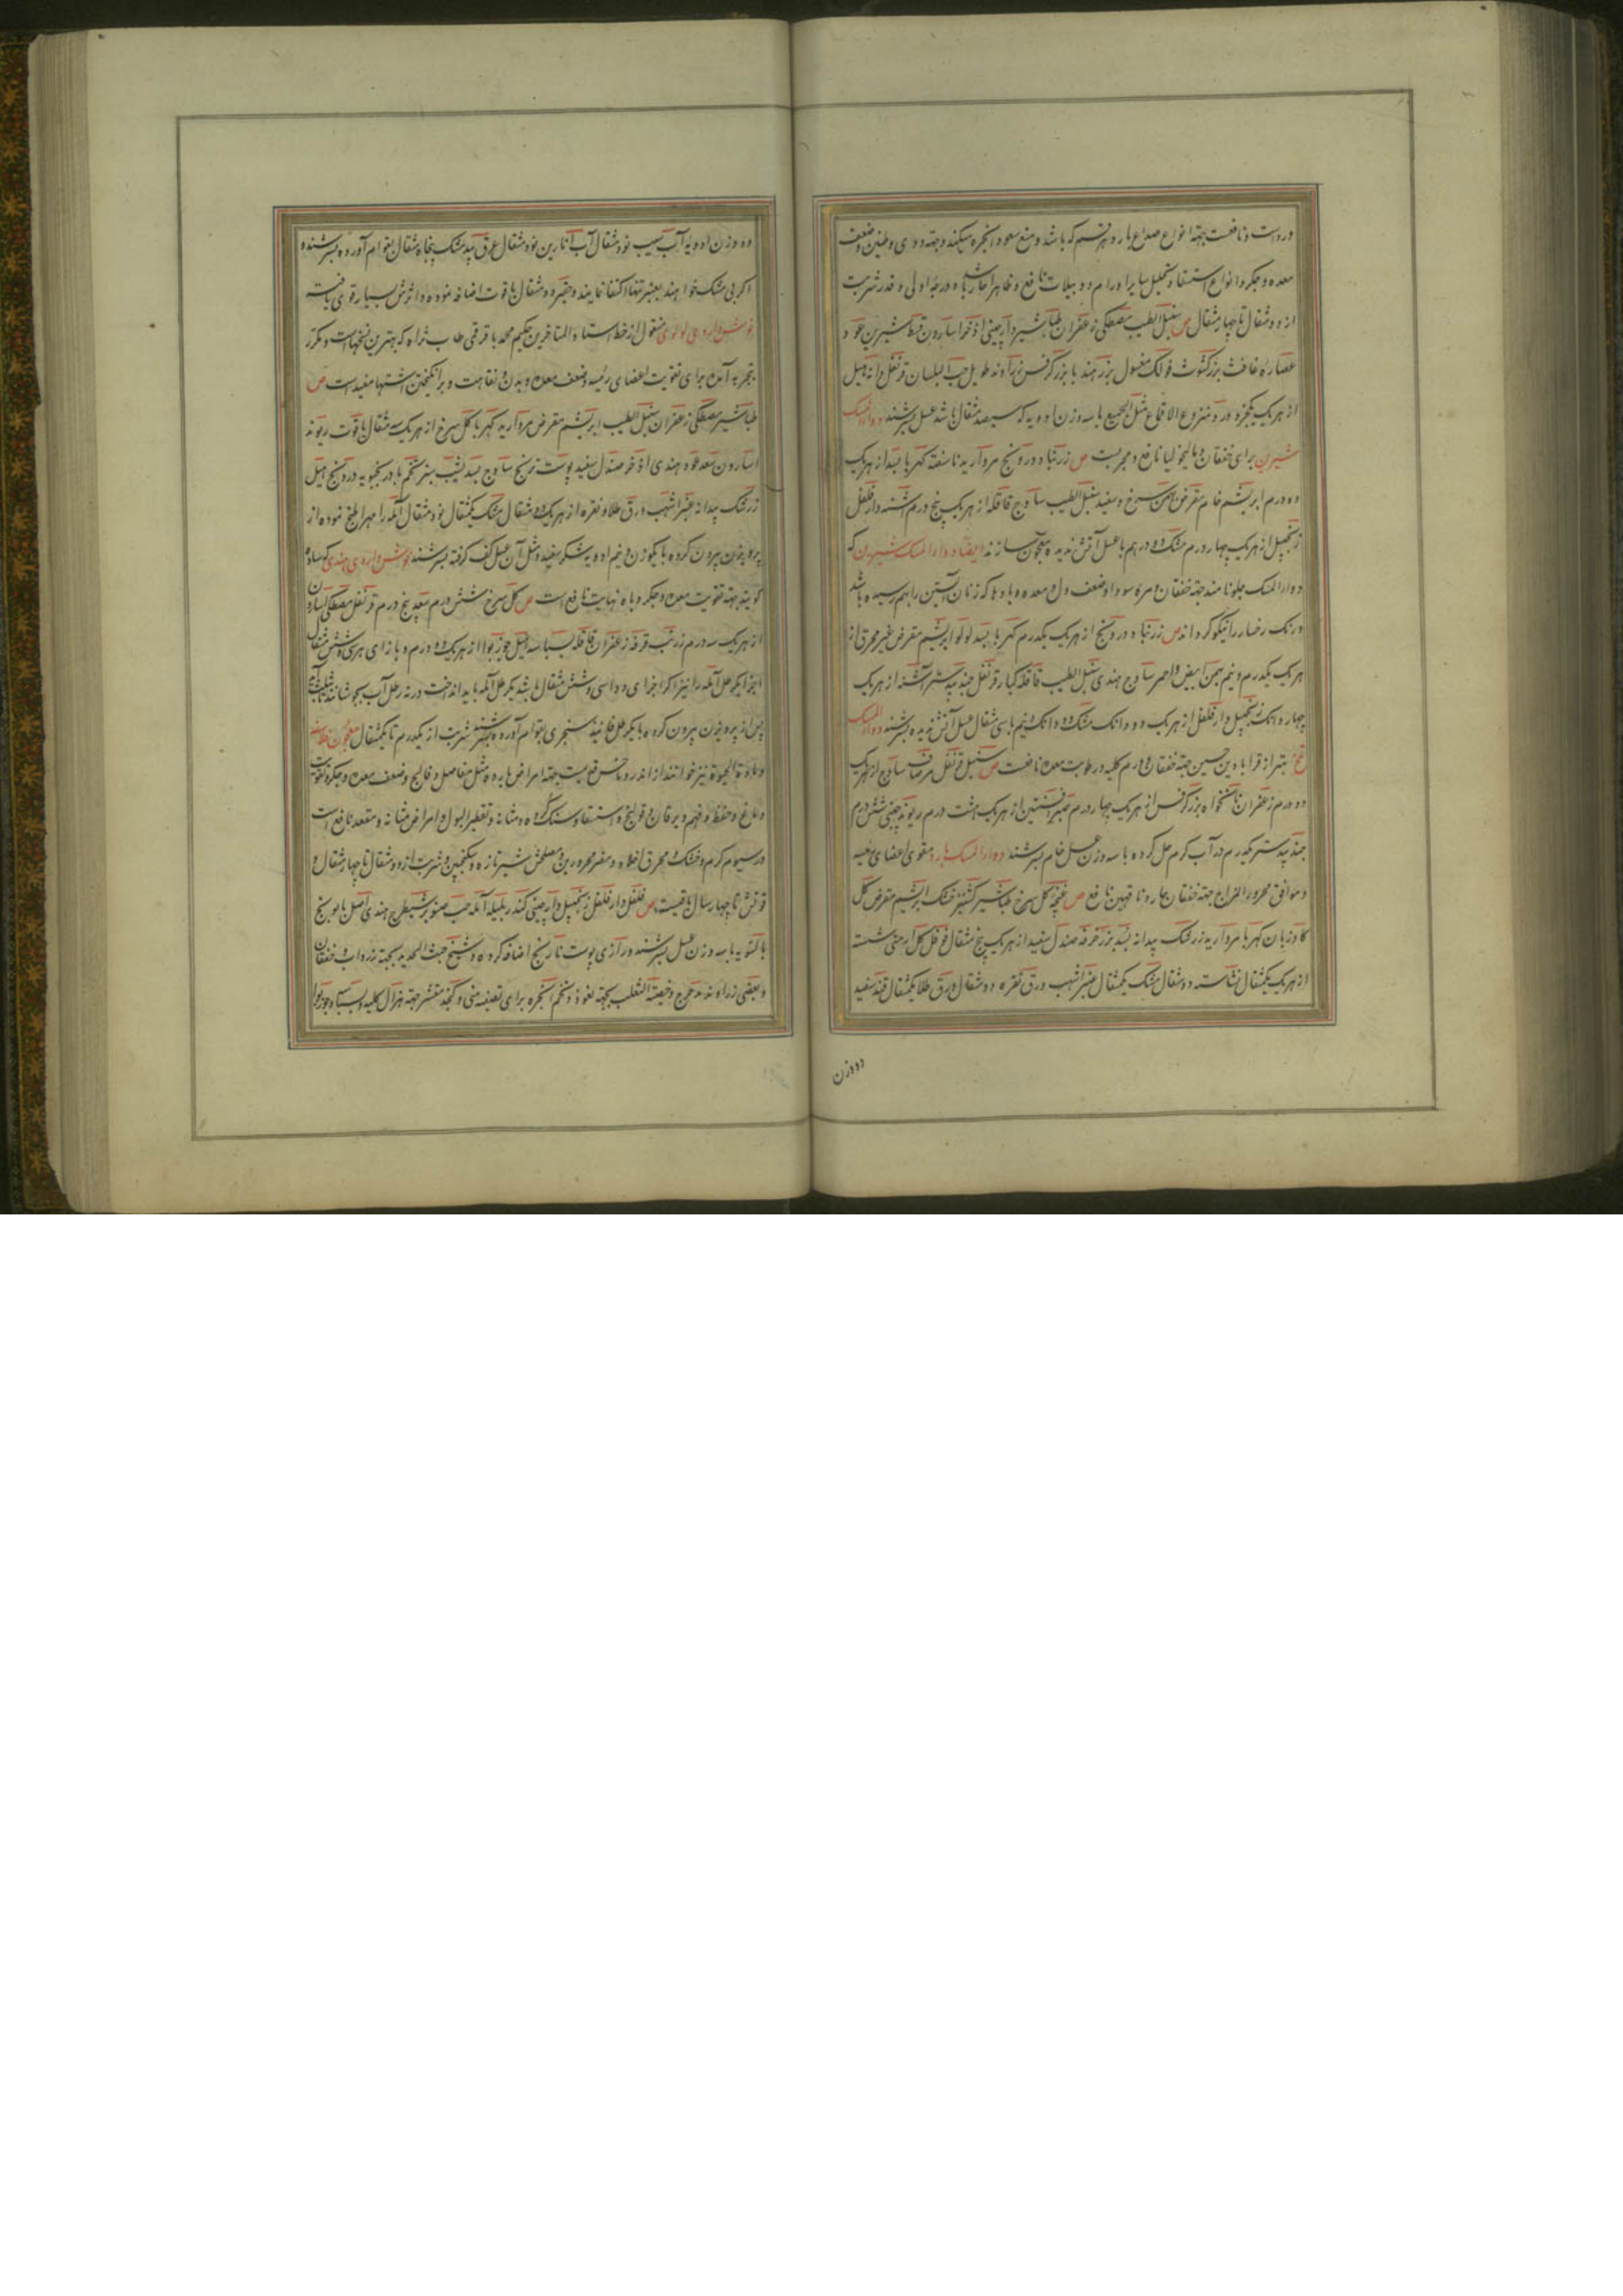 وردست و نافعست جهته انواع صداع بارد و هر قسم که باشد و منع صعود ابخره میکند و جهته دوی و طنین و ضعف
معده و جکر و انواع استسقا و تحلیل سایر اورام و دبیلات نافع و ظاهرا حار باشد در درجه اولی و قدر شربت
از دو مثقال تا چهار مثقال ص سنبل الطیب مصطکی زعفران طباشیر دارچینی اذخر اسارون قسط شیرین عود
عصاره غافث بزر کشوث فوه لک مغسول بزر هندبا بزر کرفس زراوند طویل حب البلسان قرنفل دانه هیل
از هر یک یکجزو ورد منزوع الاقماع مثل الجمیع با سه وزن ادویه که سیصد مثقال باشد عسل بسرشند دواء المسک
شیرین برای خفقان و مالیخولیا نافع و مجربست ص زرنباد درونج مروارید ناسفته کهربا بسد از هر یک
ده درم ابریشم خام مقرض بهمن سرخ و سفید سنبل الطیب ساذج قاقله از هر یک پنج درم اشنه دارفلفل
زنجبیل از هر یک چهار درم مشک دو درهم با عسل آتش ندیده معجون سازند ایضا دواء المسک شیرین که
دواء المسک حلو نامند جهته خفقان و مره سودا و ضعف دل و معده و بادها که زنان آبستن را بهم رسیده باشد
و رنک رخسار را نیکو کرداند ص زرنباد درونج از هر یک یکدرم کهربا بسد لولو ابریشم مقرض غیر محرق از
هر یک یکدرم و نیم بهمن ابیض و احمر ساذج هندی سنبل الطیب قاقله کبار قرنفل جندبیدستر اشنه از هر یک
چهار دانک زنجبیل دارفلفل از هر یک دو دانک مشک دو دانک و نیم با سی مثقال عسل آتش ندیده بسرشند دواء المسک
تلخ بهتر از قرابادین حسین جهته خفقان و ورم کلیه و رطوبت معده نافعست ص سنبل قرنفل مرصاف ساذج از هر یک
دو درم زعفران نانخواه بزر کرفس از هر یک چهار درم صبر افسنتین از هر یک هشت درم ریوند چینی شش درم
جندبیدستر یکدرم در آب کرم حل کرده با سه وزن عسل خام بسرشند دواء المسک بارد مقوی اعضای رئیسه
و موافق محرور المزاج جهته خفقان حار و ناقهین نافع ص غنچه کل سرخ طباشیر کشنیز خشک ابریشم مقرض کل
کاوزبان کهربا مروارید زرشک بیدانه بسد بزر خرفه صندل سفید از هر یک پنج مثقال فوفل کل ارمنی شسته
از هر یک یکمثقال نشاسته دو مثقال مشک یکمثقال عنبر اشهب ورق نقره دو مثقال ورق طلا یکمثقال قند سفید
دو وزن
دو وزن ادویه آب سیب نود مثقال آب انارین نود مثقال عرق بیدمشک پنجاه مثقال بقوام آورده بسرشند و
اکر بی مشک خواهند بعنبر تنها اکتفا نمایند و حقیر دو مثقال یاقوت اضافه نموده و اثرش بسیار قوی یافته
نوشداروی لولوی منقول از خط استاد المتاخرین حکیم محمد باقر قمی طاب ثراه که بهترین نسخهاست و مکرر
بتجربه آمده برای تقویت اعضای رئیسه و ضعف معده و بدن و نقاهت و برانکیختن اشتها مفیدست ص
طباشیر مصطکی زعفران سنبل الطیب ابریشم مقرض مروارید کهربا کل سرخ از هر یک سه مثقال یاقوت ریوند
اسارون سعد عود هندی اذخر صندل سفید پوست ترنج ساذج بسد یشب سبز تخم بادرنجبویه درونج هیل
زرشک بیدانه عنبر اشهب ورق طلا و نقره از هر یک دو مثقال مشک یکمثقال نود مثقال آمله را مهرا طبخ نموده از
پرویزن بیرون کرده با یکوزن و نیم ادویه شکر سفید و مثل آن عسل کف کرفته بسرشند نوشداروی هندی که ساده
کویند جهته تقویت معده و جکر و باه نهایت نافع است ص کل سرخ شش درم سعد پنج درم قرنفل مصطکی اسارون
از هر یک سه درم زرنب قرفه زعفران قاقله بسباسه هیل جوزبوا از هر یک دو درم و بازای هر سی و شش مثقال
اجزا یکرطل آمله
پس از پرویزن بیرون کرده با یکرطل فانیذ سنجری بقوام آورده بسرشند شربت از یکدرم تا یکمثقال معجون فلاسفه
و مادة الحیوة نیز خوانند از اندروماخس قویست جهته امراض بارده مثل مفاصل و فالج و ضعف معده و جکر و تقویت
دماغ و حفظ و فهم و یرقان و قولنج و استسقا و سنک کرده و مثانه و تقطیر البول و امراض مثانه و مقعد نافع است
در سیوم کرم و خشک و محرق اخلاط و مضر محرورین و مصلحش شیر تازه و سکنجبین و شربت از دو مثقال تا چهار مثقال و
قوتش تا چهار سال باقیست ص فلفل دارفلفل زنجبیل دارچینی کندر بلیله آمله حب صنوبر شیطرج هندی اصل بابونج
با کشویه با سه وزن عسل بسرشند و رازی پوست نارنج اضافه کرده و شیخ خبث الحدید بجهته زرداب و خفقان
و بعضی زراوند مدحرج و خصیة الثعلب بجهته نعوذ و تخم انجره برای تصفیه منی و کنجد مقشر جهته هزال کلیه و بسباسه و جوزبوا